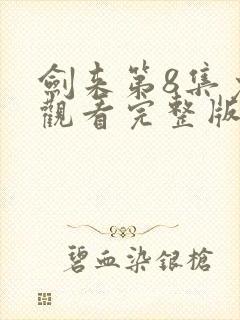 劍来第8集
觀看完整版
碧血染银槍